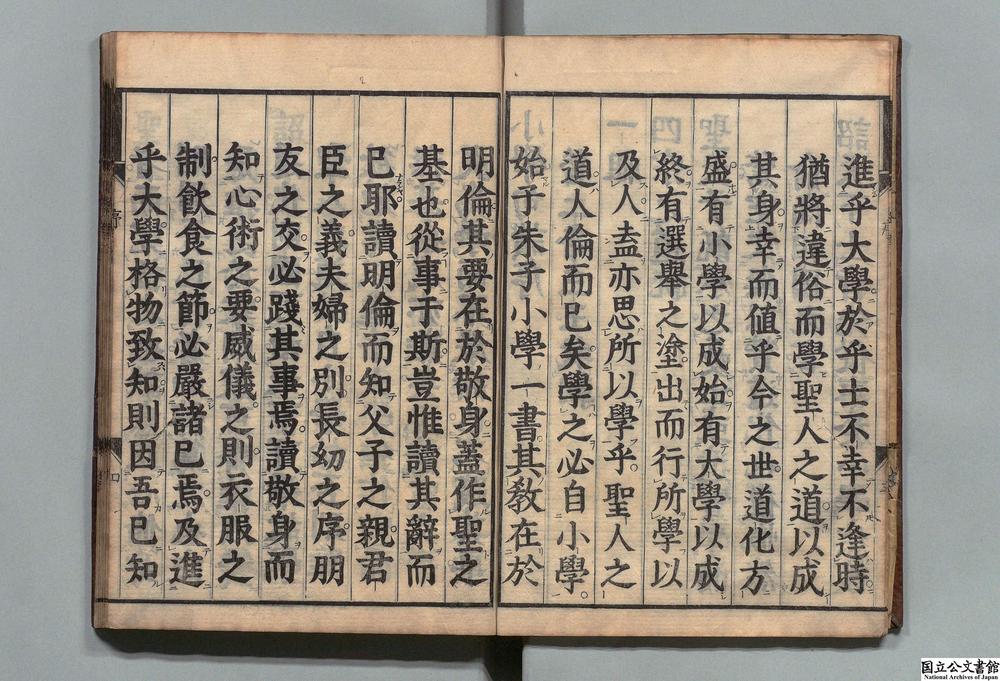 進乎大學於乎士不幸不逢時
猶將違俗而學聖人之道以成
其身幸而値乎今之世道化方
盛有小學以成始有大學以成
終有選舉之塗出而行所學以
及人盍亦思所以學乎聖人之
道人倫而已矣學之必自小學
始于朱子小學一書其教在於
明倫其要在於敬身蓋作聖之
基也從事于斯豈惟讀其辭而
已耶讀明倫而知父子之親君
臣之義夫婦之別長幼之序朋
友之交必踐其事焉讀敬身而
知心術之要威儀之則衣服之
制飲食之節必嚴諸已焉及進
乎大學格物致知則因吾已知
序
国立公文書館
National Archives of Japan